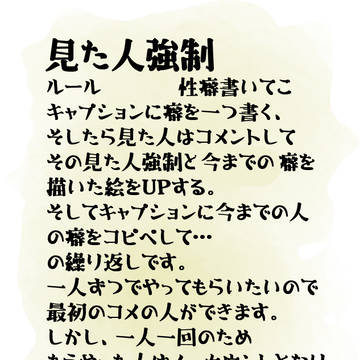 見た人強制
ルール　　　性癖書いてこ
キャプションに癖を一つ書く、
そしたら見た人はコメントして
その見た人強制と今までの癖を
描いた絵をUPする。
そしてキャプションに今までの人
の癖をコピペして…
の繰り返しです。
一人ずつでやってもらいたいので
最初のコメの人ができます。
しかし、一人一回のため